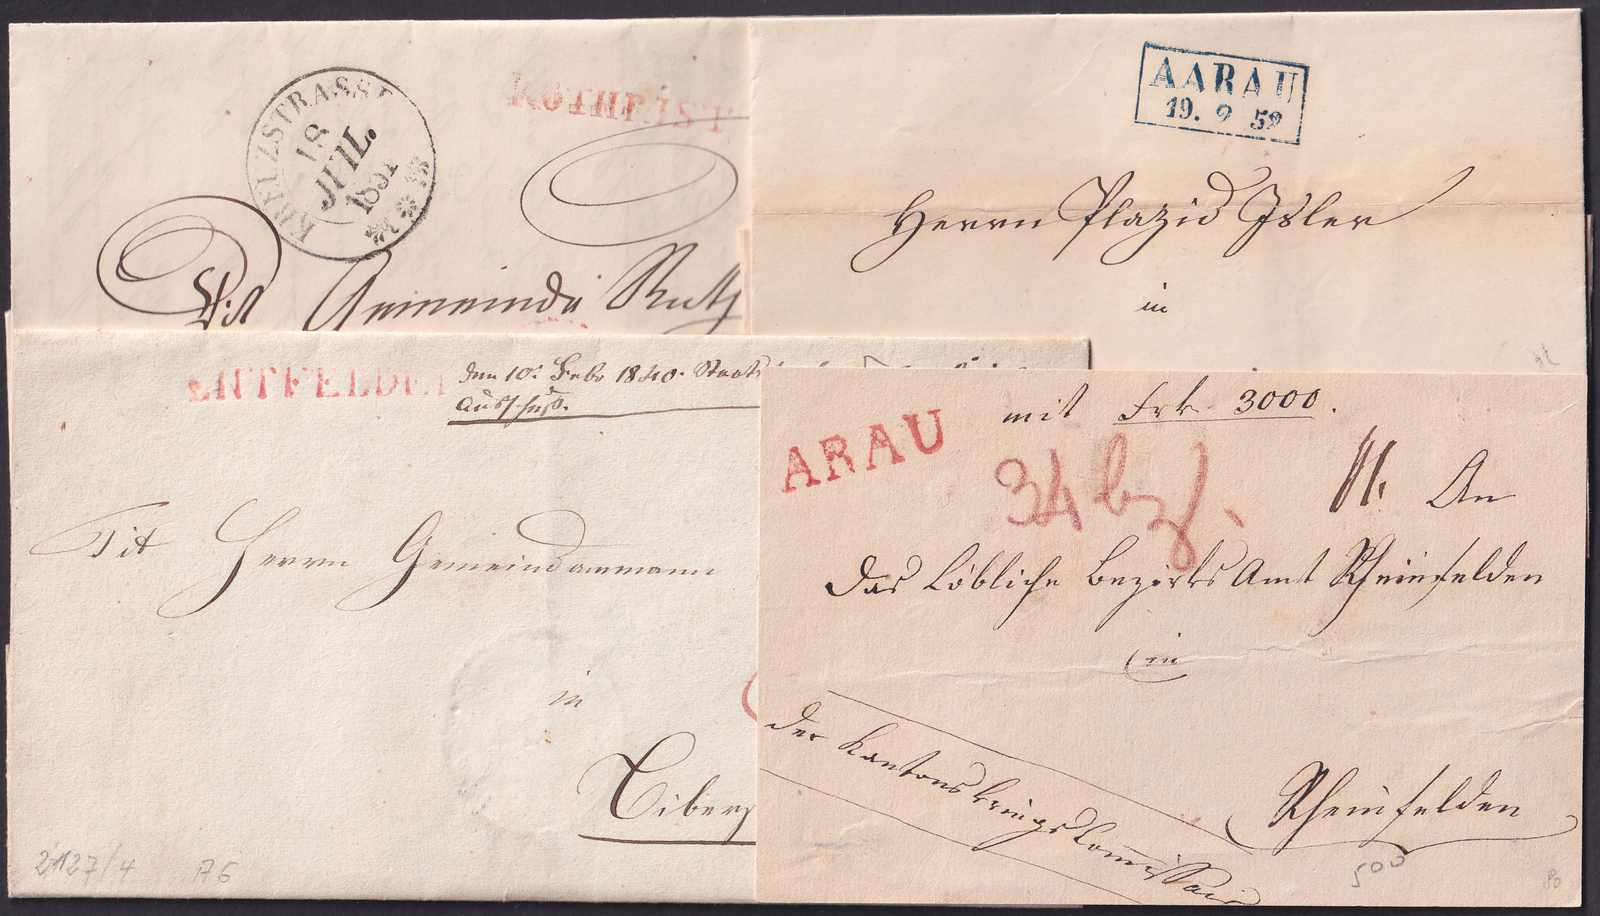 KREUZSTRASSE
18
JUL.
1851
ROTHRIST
Gemeinde
AARAU
19. 2 52
Herrn Plazid Isler
in
ENTFELDEN
den 10. Febr 1840.
Ausschuß.
Tit Herrn Gemeindammann
in
Bibers
ARAU
mit Frk. 3000.
34 bz.
An
das Löbliche Bezirks Amt Rheinfelden
in
Rheinfelden
der Kantonskriegscommissair
2127/4 A6
500
80